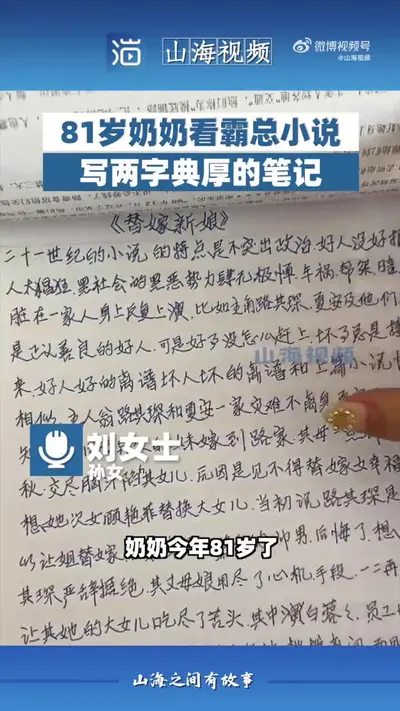 山海视频
微博视频号
@山海视频
81岁奶奶看霸总小说
写两字典厚的笔记
《替嫁新娘》
二十一世纪的小说的特点是不突出政治.好人没好报
人大猖狂.黑社会的黑恶势力肆无极惮.车祸.绑架.暗
脏在一家人身上反复上演.比如主角路其琛.夏安及他们
是正认善良的好人.可是好多没怎么赶上.坏了总是接
来.好人好的离谱坏人坏的离谱和上篇小说
相似.主人翁路其琛和夏安一家灾难不离身
山海视频
妹嫁到路家.其母
刘女士
孙女
秋.交尽脑汁的其女儿.后因是见不得替嫁女幸福
想她次女顾艳菲替换大女儿.当初说路其琛是
以让姐替嫁
男.后悔了.想
奶奶今年81岁了
其琛严辞拒绝.其丈母娘用尽了心机手段.一二再
让其她的大女儿吃尽了苦头.其中演白蓉
员工
山海之间有故事